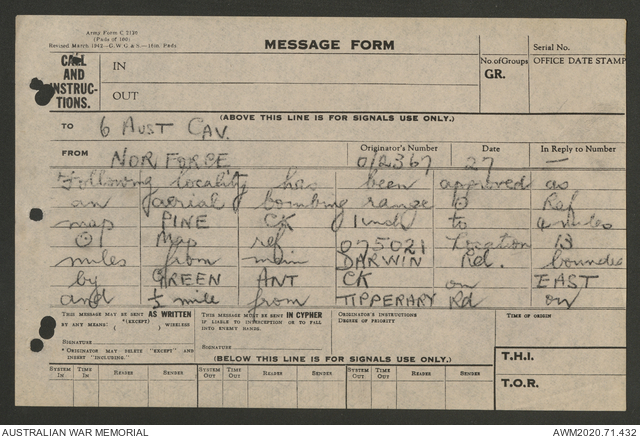 Army Form C 2136
(Pads of 100)
Revised March, 1942
MESSAGE FORM
Serial No.
CALL AND INSTRUCTIONS.
IN
OUT
No. of Groups
GR.
OFFICE DATE STAMP
(ABOVE THIS LINE IS FOR SIGNALS USE ONLY.)
TO 6 AUST CAV.
FROM NORFORCE
Originator's Number
Date
In Reply to Number
O/2367 27 —
Following locality has been approved as
an aerial bombing range Ref
map PINE CK 1 inch to 4 miles
01 Map ref 075021 Location 13
miles from main DARWIN Rd. bounded
by GREEN ANT CK on EAST
and ½ mile from TIPPERARY Rd on
THIS MESSAGE MAY BE SENT AS WRITTEN
BY ANY MEANS. (EXCEPT) WIRELESS
SIGNATURE
*ORIGINATOR MAY DELETE "EXCEPT" AND
INSERT "INCLUDING."
THIS MESSAGE MUST BE SENT IN CYPHER
IF LIABLE TO INTERCEPTION OR TO FALL
INTO ENEMY HANDS.
SIGNATURE
ORIGINATOR'S INSTRUCTIONS
DEGREE OF PRIORITY
TIME OF ORIGIN
(BELOW THIS LINE IS FOR SIGNALS USE ONLY.)
T.H.I.
T.O.R.
SYSTEM IN TIME IN READER SENDER SYSTEM OUT TIME OUT READER SENDER SYSTEM OUT TIME OUT READER SENDER
AUSTRALIAN WAR MEMORIAL
AWM2020.71.432